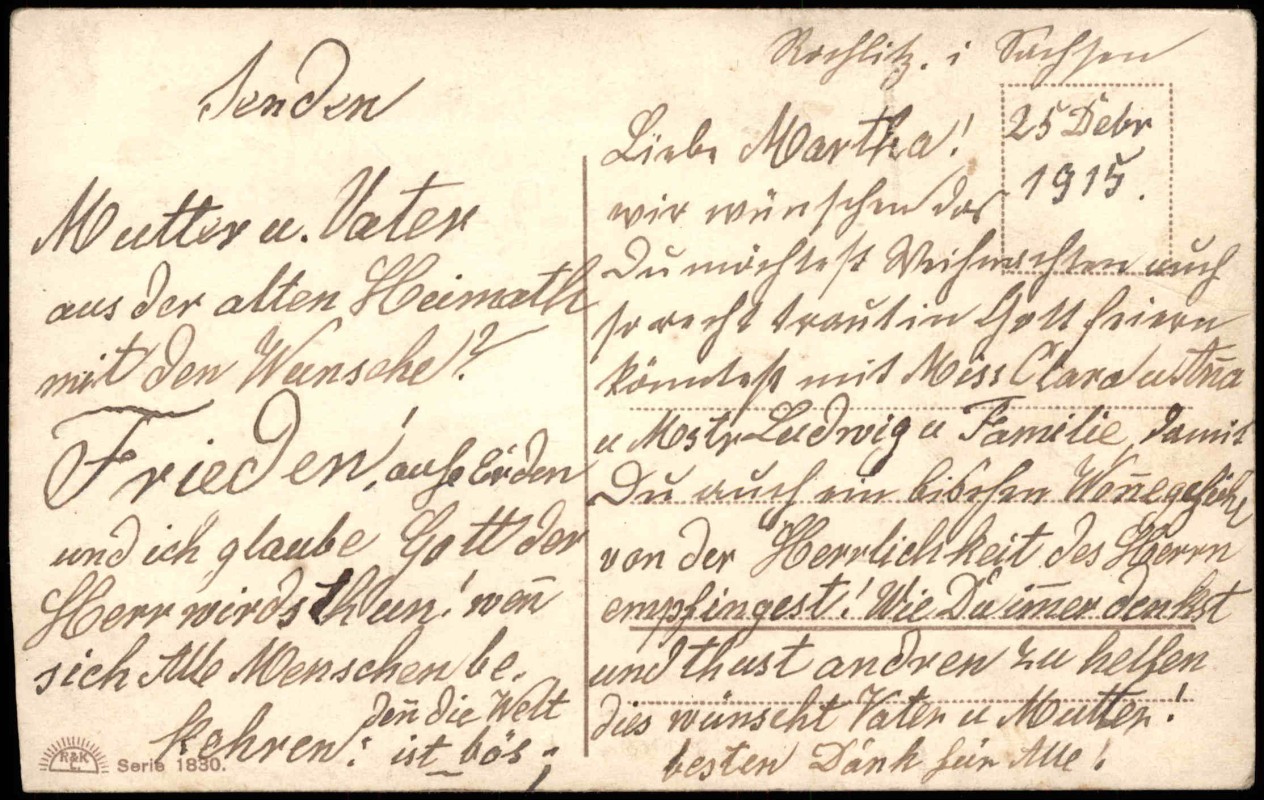 Senden
Mutter u. Vater
aus der alten Heimath
mit den Wunsche!?
Frieden! auf Erden
und ich glaube Gott der
Herr wirds thun! weñ
sich Alle Menschen be.
kehren: deñ die Welt
ist bös;
R&K
L.
Serie 1830.
Rochlitz. i Sachsen
25 Debr
1915.
Liebe Martha!
wir wünschen das
Du möchtest Weihnachten auch
so recht traut in Gott feiern
könntest mit Miss Clara u Añа
u Mstr Ludwig u Familie, damit
Du auch ein bischen Woñegefühl
von der Herrlichkeit des Herrn
empfingest! Wie Du im̃er denkst
und thust andren zu helfen
dies wünscht Vater u Mutter!
besten Dank für Alle!